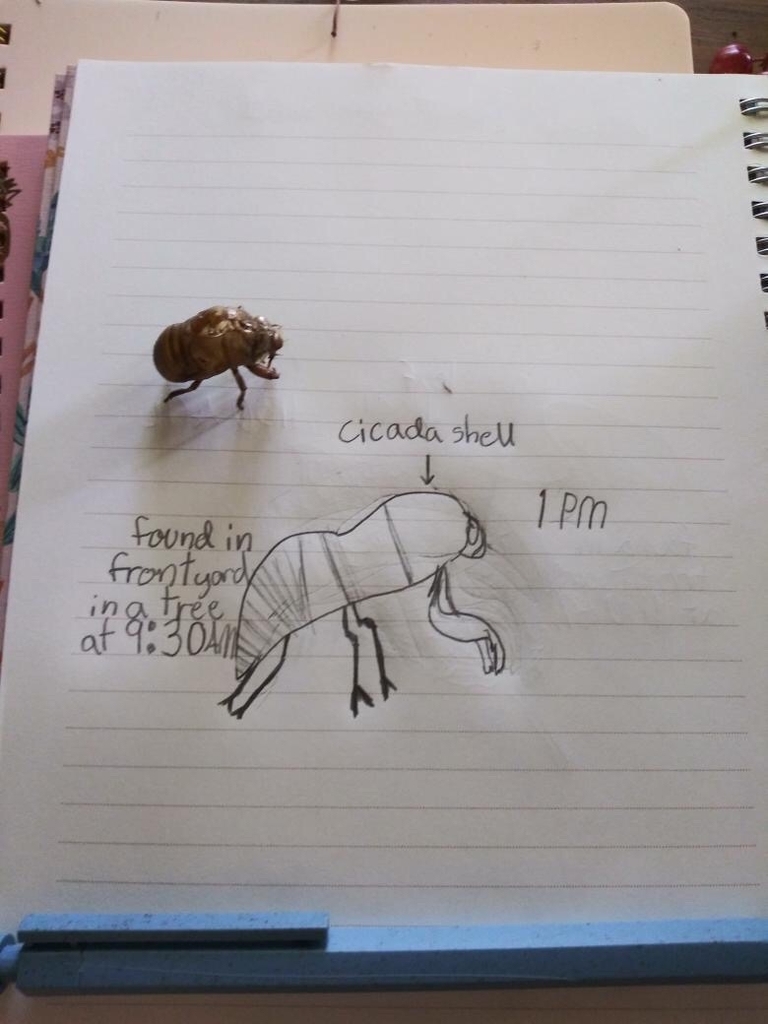 cicada shell
1 PM
found in
frontyard
in a tree
at 9:30AM